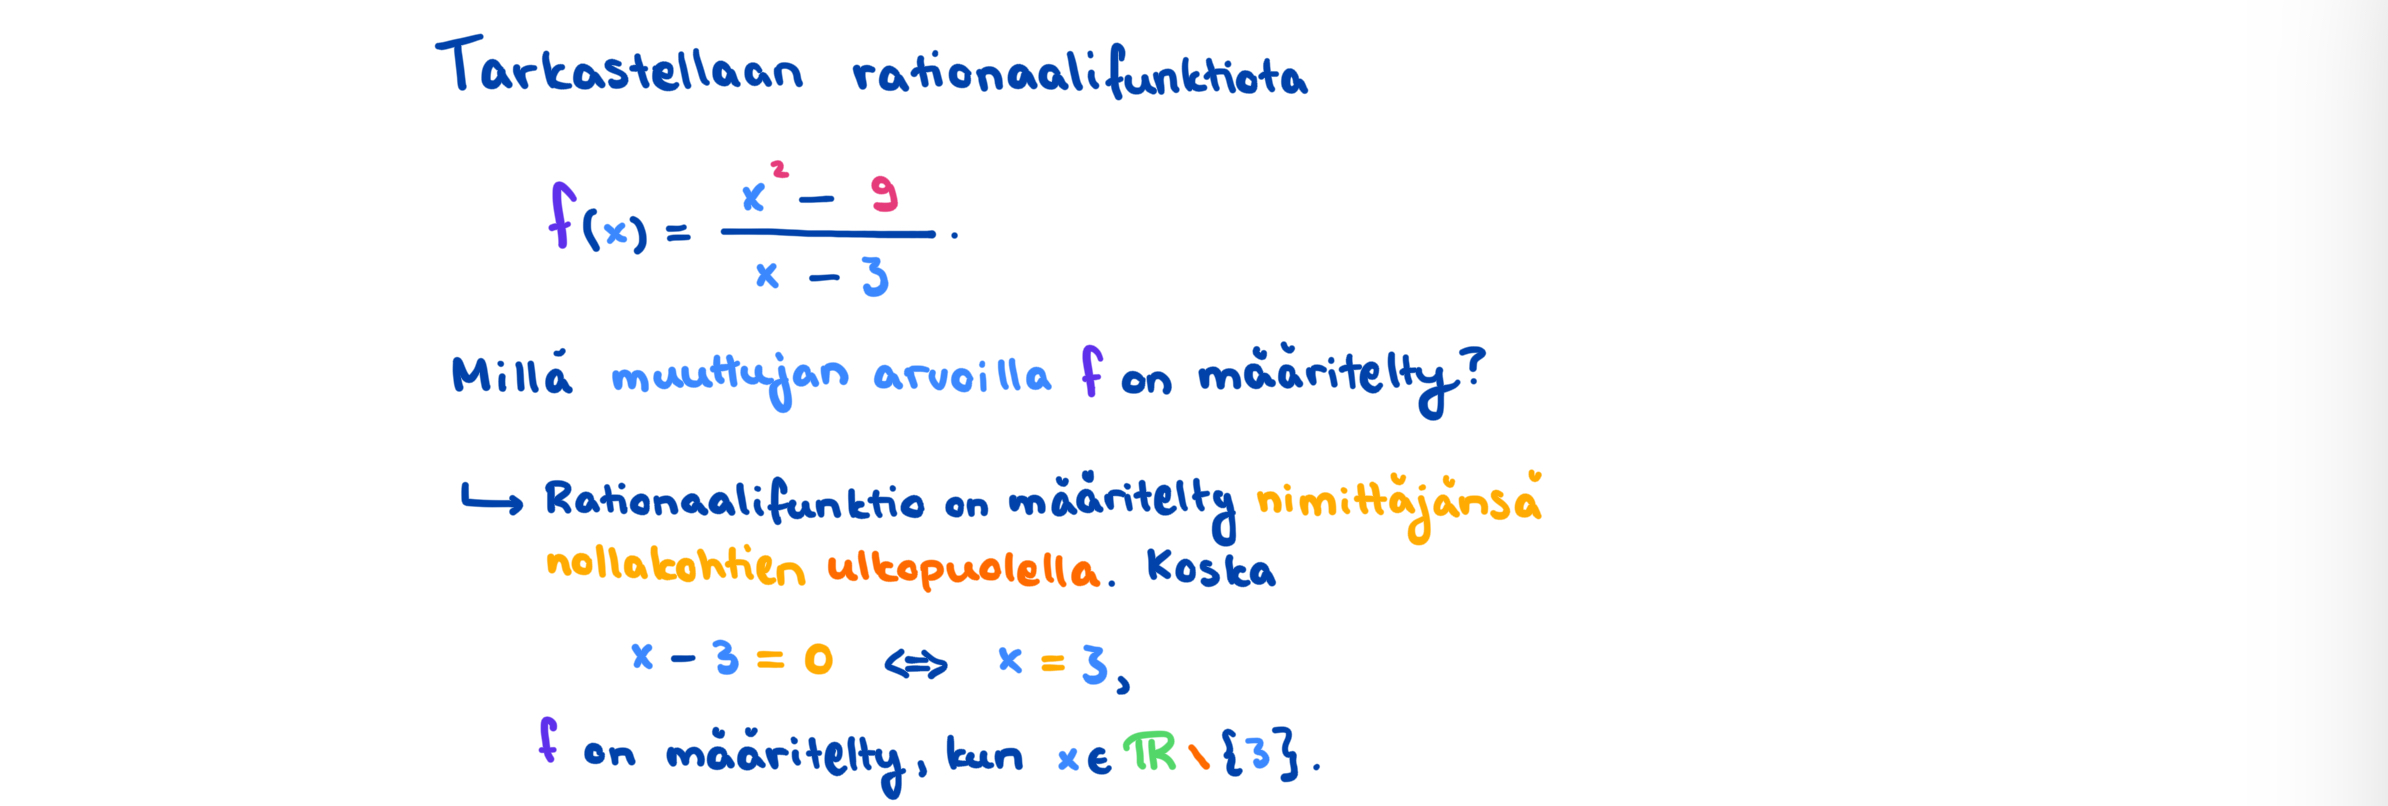 Tarkastellaan rationaalifunktiota
f(x) = (x² - 9)/(x - 3).
Millä muuttujan arvoilla f on määritelty?
↳ Rationaalifunktio on määritelty nimittäjänsä
nollakohtien ulkopuolella. Koska
x - 3 = 0 ⇔ x = 3,
f on määritelty, kun x ∈ ℝ \ {3}.